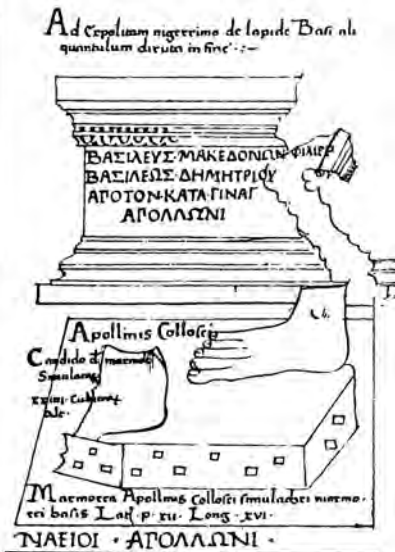 Ad Expolitam nigerrimo de lapide Basi ali
quantulum diruta in fine
ΒΑΣΙΛΕΥΣ·ΜΑΚΕΔΟΝΩΝ·ΦΙΛΙΠΠ
ΒΑΣΙΛΕΩΣ·ΔΗΜΗΤΡΙΟΥ
ΑΓΟΤΟΝ·ΚΑΤΑ·ΓΙΝΑΓ
ΑΓΟΛΛΩΝΙ
Apollinis Collosei
Candido
Simulacrum
Marmorea Apollinis Collosei simulachri marmo-
rei basis Lat. p. xii. Long. xvi.
ΝΑΞΙΟΙ · ΑΓΟΛΛΩΝΙ ·